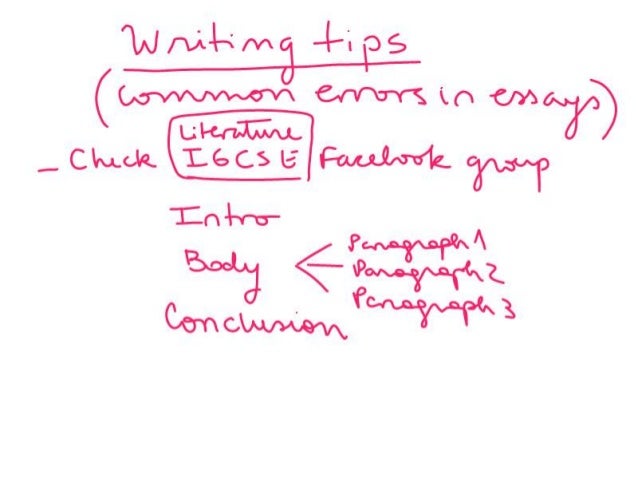 Writing tips
(common errors in essays)
- Check Literature IGCSE Facebook group
Intro
Body < Paragraph 1
Paragraph 2
Paragraph 3
Conclusion